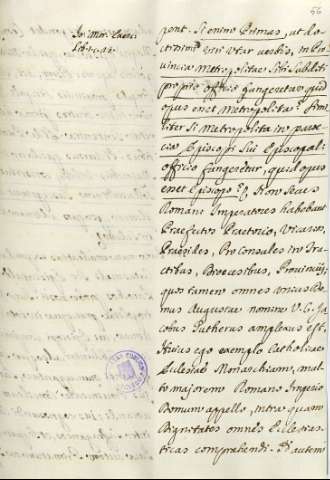 56
pont. Si enim Primas, ut Doc
tissimi viri utar verbis, in Pro
vincia Metropolitae Sibi Subditi
proprio officio fungeretur, quid
opus esset Metropolita? Simi
liter Si Metropolita in paroe
cia Episcopi Sui Episcopali
officio fungeretur, quid opus
esset Episcopo? Non Secus
Romani Imperatores habebant
Praefectos Praetorio, Vicarios,
Praesides, Pro Consules in Trac
tibus, Dioecesibus, Provincijs,
quos tamen omnes unicus Ro
mae Augustae nomine V. C. Ja
cobus Gutherus amplexus est.
Huius ego exemplo Catholicae
Ecclesiae Monarchiam, mul
to majorem Romano Imperio
Domum appello, intra quam
Dignitates omnes Ecclesias
ticas comprehendi.
autem